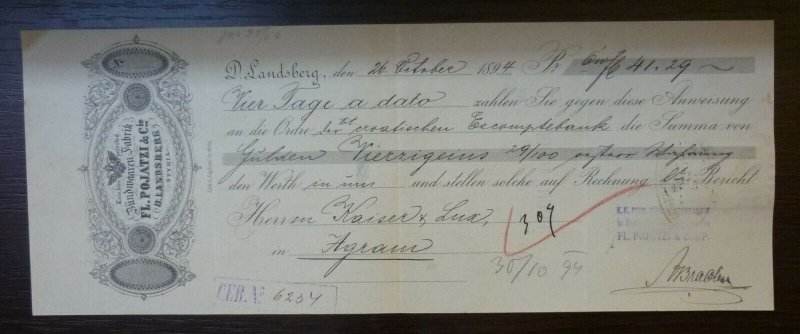 per 30/10
No
Kais. kön. privileg.
Zündwaaren-Fabrik
FL. POJATZI & Cie
D. LANDSBERG
STYRIA.
D. Landsberg, den 26 October 1894 Pr. fl 41.29
Vier Tage a dato zahlen Sie gegen diese Anweisung
an die Ordre der croatischen Escomptebank die Summa von
Gulden Vierzigeins 29/100 österr Währung
den Werth in uns und stellen solche auf Rechnung Bericht
Herren Kaiser & Lux,
in Agram
307
30/10 94
K.K. PRIV.
FL. POJATZI & COMP.
CEB. No 6234